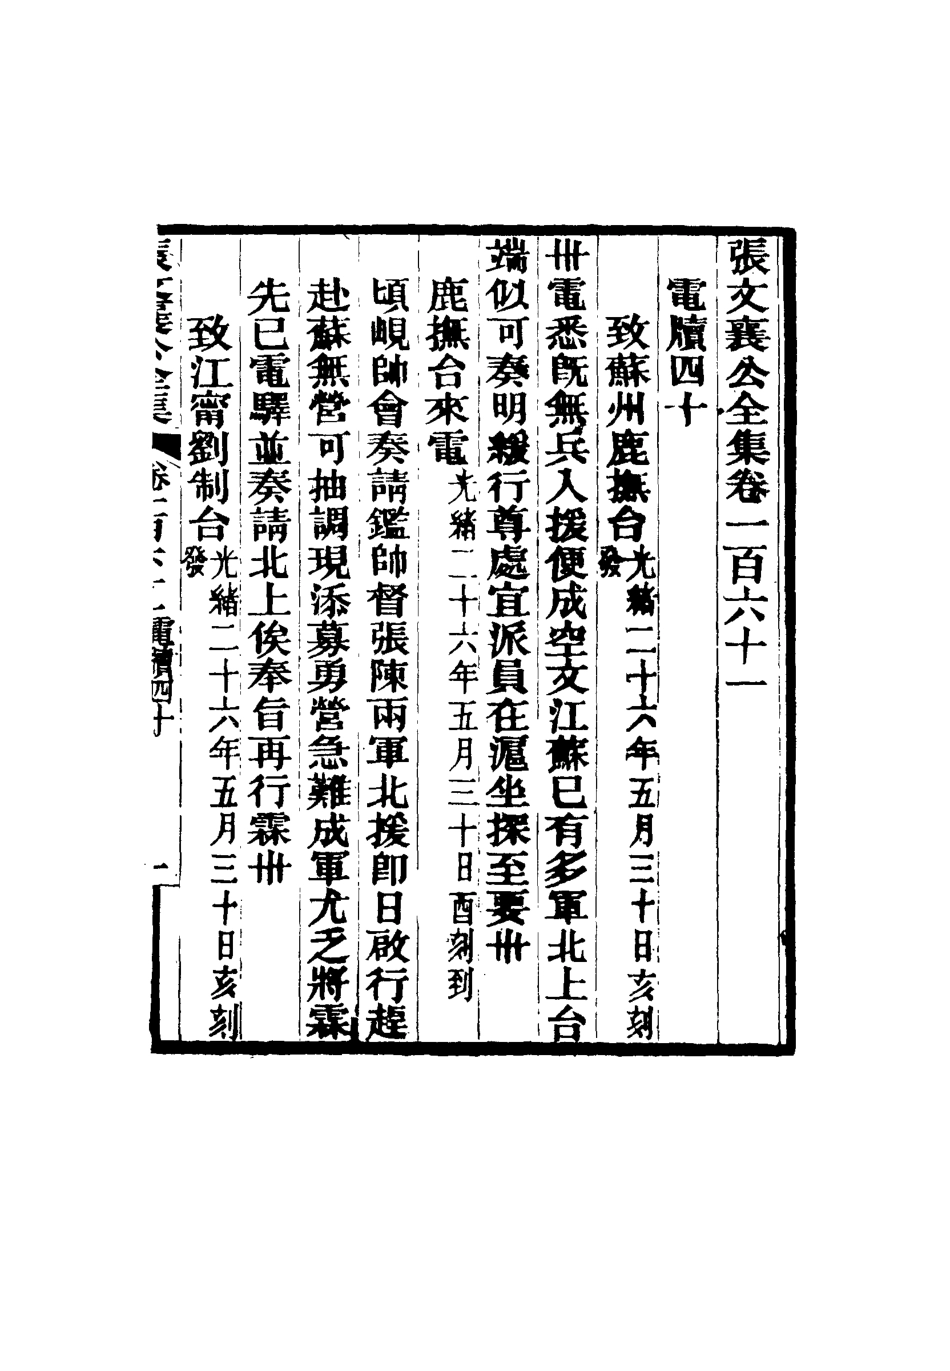 張文襄公全集卷一百六十一
電牘四十
致蘇州鹿撫台光緒二十六年五月三十日亥刻發
卅電悉既無兵入援便成空文江蘇已有多軍北上台
端似可奏明緩行尊處宜派員在滬坐探至要卅
鹿撫台來電光緒二十六年五月三十日酉刻到
頃峴帥會奏請鑑帥督張陳兩軍北援即日啟行趕
赴蘇無營可抽調現添募勇營急難成軍尤乏將霖
先已電驛並奏請北上俟奉旨再行霖卅
致江甯劉制台光緒二十六年五月三十日亥刻發
張文襄公全集 卷一百六十一 電牘四十 一